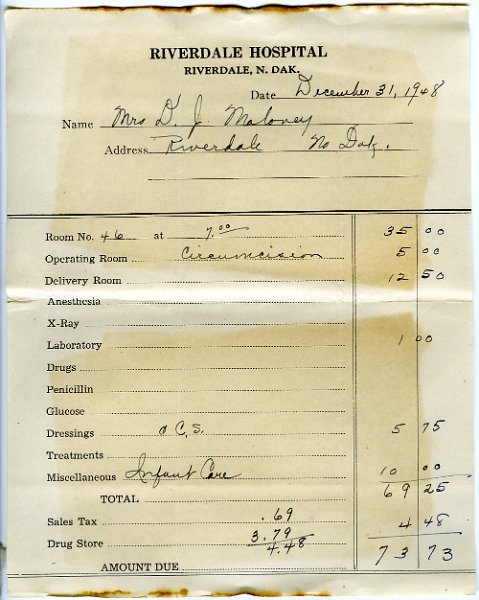 RIVERDALE HOSPITAL
RIVERDALE, N. DAK.
Date December 31, 1948
Name Mrs D. J. Maloney
Address Riverdale No Dak.
Room No. 46 at 7.00 35 00
Operating Room Circumcision 5 00
Delivery Room 12 50
Anesthesia
X-Ray
Laboratory 1 00
Drugs
Penicillin
Glucose
Dressings O C.S. 5 75
Treatments
Miscellaneous Infant Care 10 00
TOTAL 69 25
Sales Tax .69 4 48
Drug Store 3.79
4.48 73 73
AMOUNT DUE